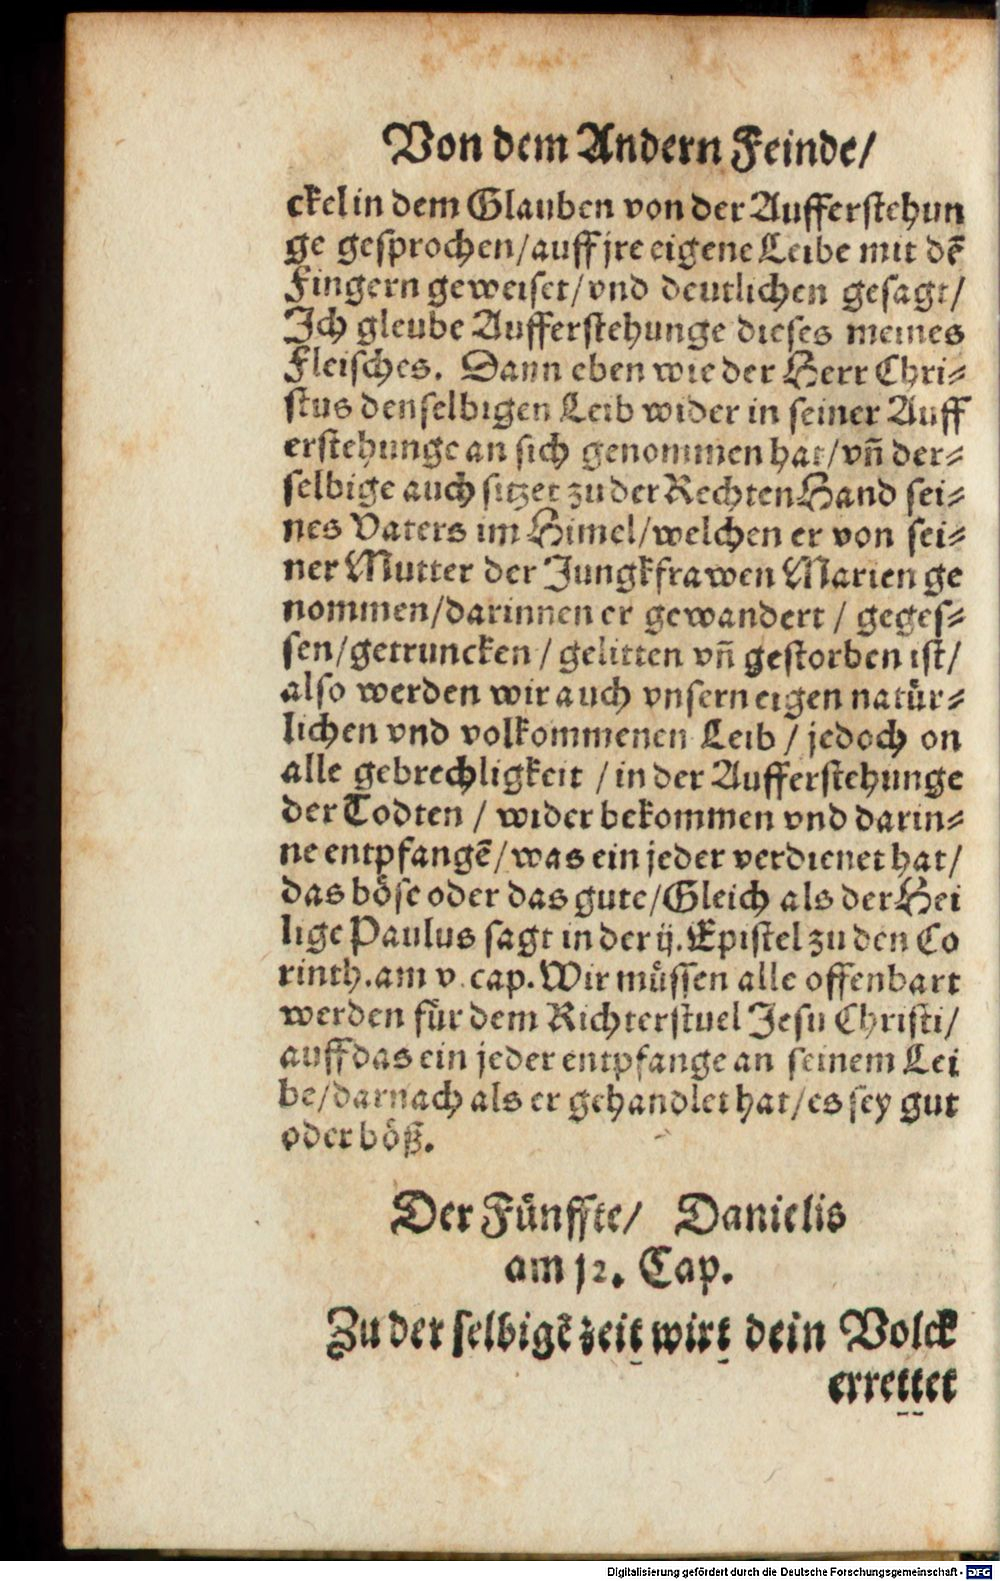 Von dem Andern Feinde/
ckel in dem Glauben von der Aufferstehun
ge gesprochen/auff jre eigene Leibe mit dē
Fingern geweiset/vnd deutlichen gesagt/
Ich gleube Aufferstehunge dieses meines
Fleisches. Dann eben wie der Herr Chri⸗
stus denselbigen Leib wider in seiner Auff
erstehunge an sich genommen hat/vn̄ der⸗
selbige auch sitzet zu der Rechten Hand sei⸗
nes Vaters im Himel/welchen er von sei⸗
ner Mutter der Jungkfrawen Marien ge
nommen/darinnen er gewandert / geges⸗
sen/getruncken / gelitten vn̄ gestorben ist/
also werden wir auch vnsern eigen natür⸗
lichen vnd volkommenen Leib / jedoch on
alle gebrechligkeit / in der Aufferstehunge
der Todten / wider bekommen vnd darin⸗
ne entpfangē/was ein jeder verdienet hat/
das böse oder das gute/Gleich als der Hei
lige Paulus sagt in der ij. Epistel zu den Co
rinth.am v. cap. Wir müssen alle offenbart
werden für dem Richterstuel Jesu Christi/
auff das ein jeder entpfange an seinem Lei
be/darnach als er gehandlet hat/es sey gut
oder böß.
Der Fünffte/ Danielis
am 12. Cap.
Zu der selbigē zeit wirt dein Volck
errettet
Digitalisierung gefördert durch die Deutsche Forschungsgemeinschaft - DFG